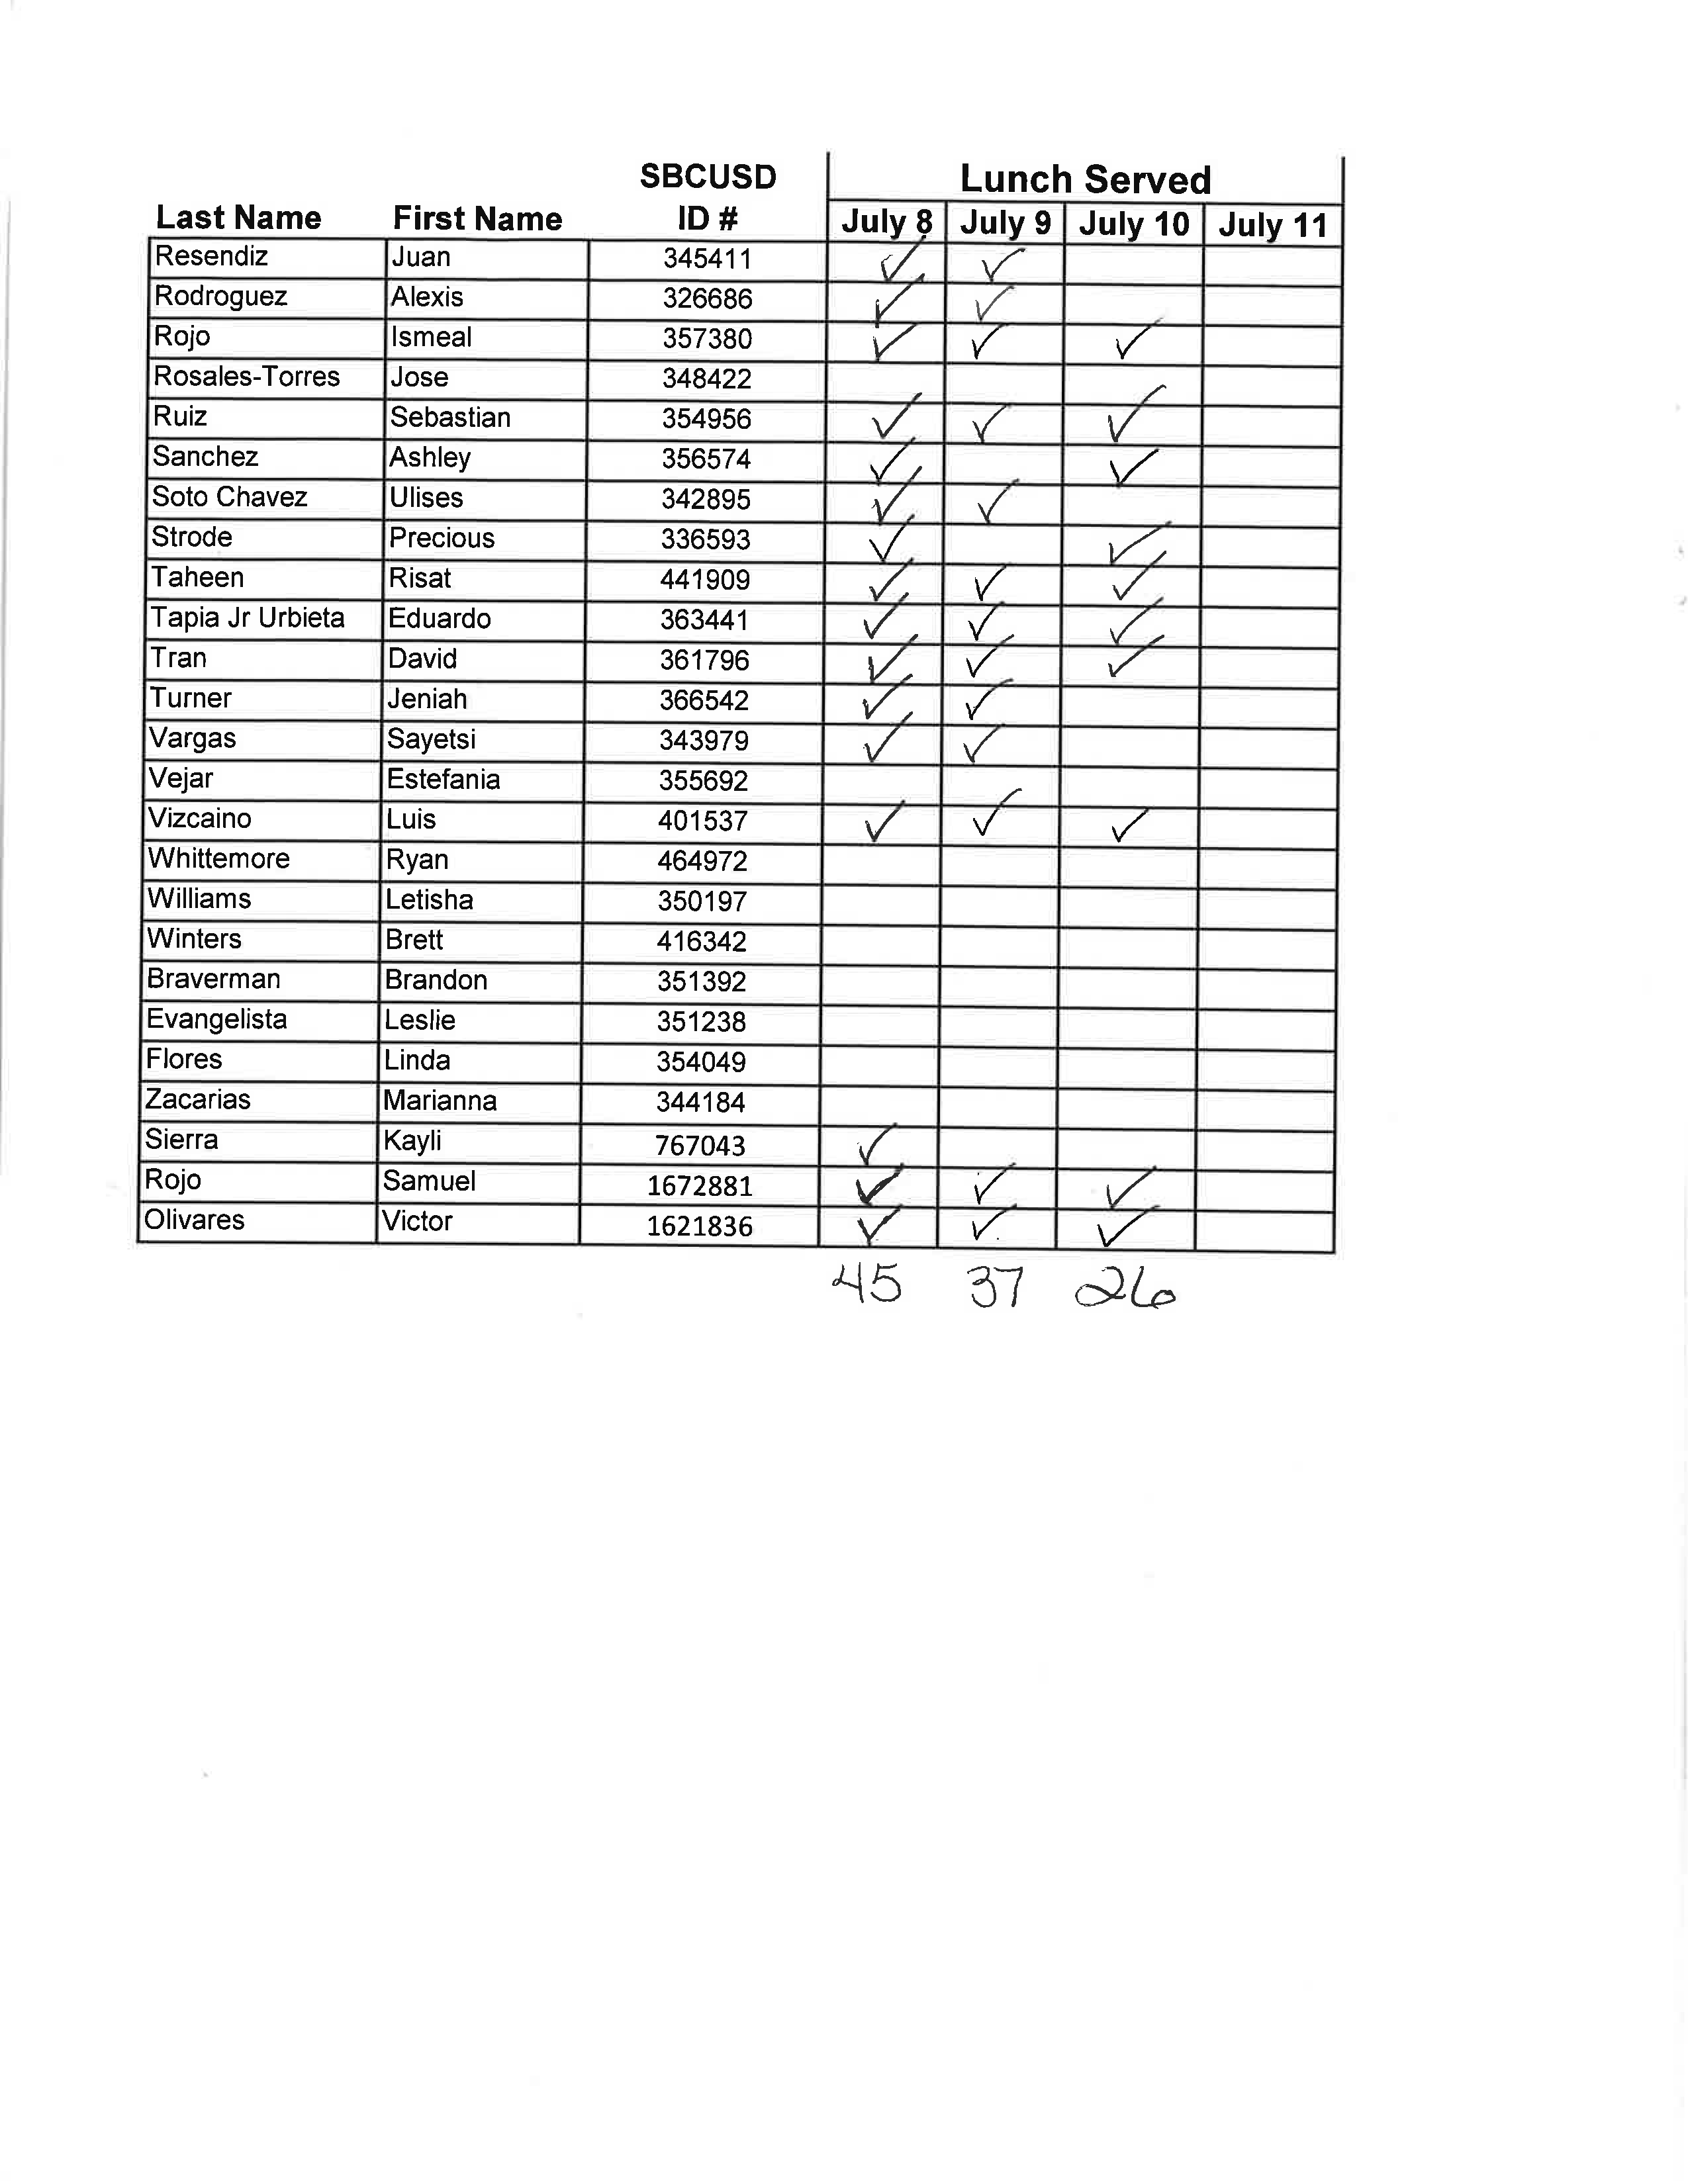 SBCUSD Lunch Served
Last Name First Name ID # July 8 July 9 July 10 July 11
Resendiz Juan 345411 ✓ ✓
Rodroguez Alexis 326686 ✓ ✓
Rojo Ismeal 357380 ✓ ✓ ✓
Rosales-Torres Jose 348422
Ruiz Sebastian 354956 ✓ ✓ ✓
Sanchez Ashley 356574 ✓ ✓
Soto Chavez Ulises 342895 ✓ ✓
Strode Precious 336593 ✓ ✓
Taheen Risat 441909 ✓ ✓ ✓
Tapia Jr Urbieta Eduardo 363441 ✓ ✓ ✓
Tran David 361796 ✓ ✓ ✓
Turner Jeniah 366542 ✓ ✓
Vargas Sayetsi 343979 ✓ ✓
Vejar Estefania 355692
Vizcaino Luis 401537 ✓ ✓ ✓
Whittemore Ryan 464972
Williams Letisha 350197
Winters Brett 416342
Braverman Brandon 351392
Evangelista Leslie 351238
Flores Linda 354049
Zacarias Marianna 344184
Sierra Kayli 767043 ✓
Rojo Samuel 1672881 ✓ ✓ ✓
Olivares Victor 1621836 ✓ ✓ ✓
45 37 26